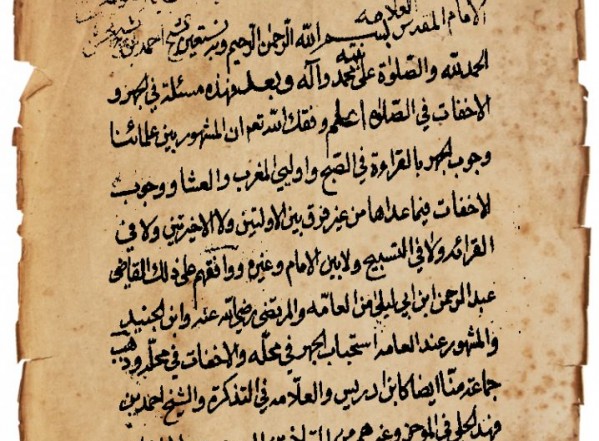 الامام المقدس العلامه
بسم الله الرحمن الرحيم وبه نستعين
الحمد لله والصلوة على نبيه محمد وآله وبعد فهذه مسئلة في الجهر و
الاخفات في الصلاة اعلم وفقك الله تعم ان المشهور بين علمائنا
وجوب الجهر بالقراءة في الصبح واوليي المغرب والعشا ووجوب
الاخفات فيما عداها من غير فرق بين الاولتين ولا الاخيرتين ولا في
القرائه ولا في التسبيح ولا بين الامام وغيره ووافقهم على ذلك القاضي
عبد الرحمن ابن ابي ليلى من العامه والمرتضى رضي الله عنه وابن الجنيد
والمشهور عند العامه استحباب الجهر في محله والاخفات في محله وذهب
جماعة منا ايضا كابن ادريس والعلامه في التذكرة والشيخ احمد بن
فهد الحلي في الموجز وغيرهم من